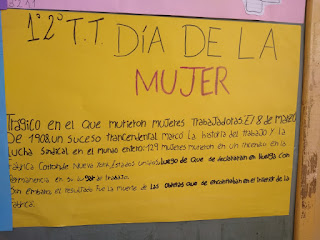 1º 2º T.T. DÍA DE LA
MUJER
Trágico en el que murieron mujeres Trabajadoras. El 8 de marzo
De 1908, un suceso trancendental marcó La historia del trabajo Y La
Lucha Sindical en el mundo entero: 129 mujeres murieron en un incendio en la
Fábrica Cotton, de Nueva York, Estados Unidos, luego de que se declararan en huelga con
permanencia en su lugar de trabajo.
Sin embargo, el resultado fue la muerte de las obreras que se encontraban en el interior de la
fábrica.